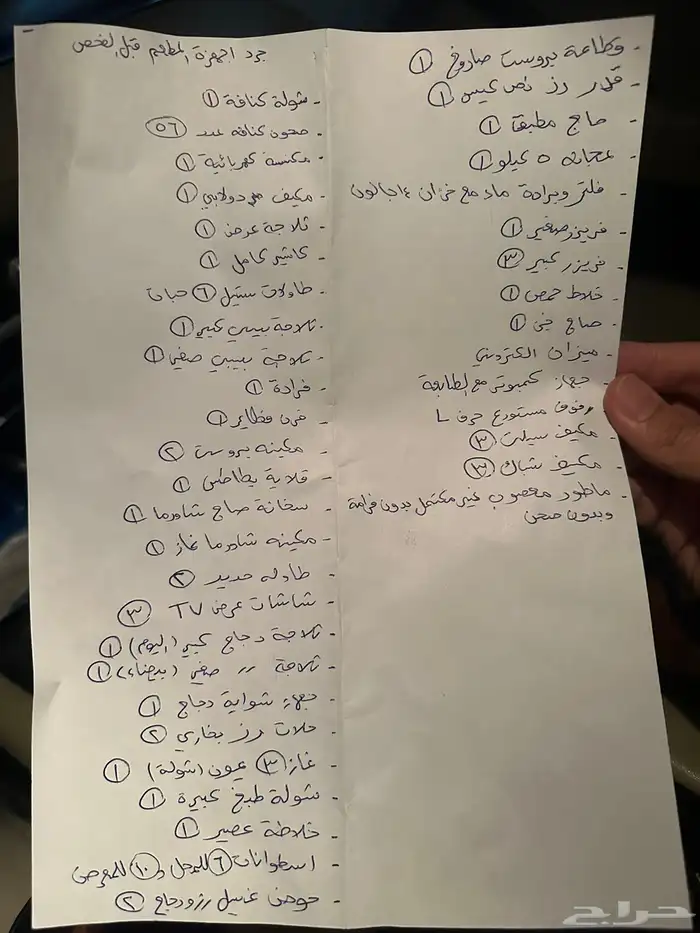 جرد اجهزة المطعم قبل الفحص
- شولة كنافة ①
- صحون كنافه عدد ٥٦
- مكنسة كهربائية ①
- مكيف دولابي ①
- ثلاجة عرض ①
- كاشير كامل ①
- طاولات ستيل ⑥ حبات
- ثلاجة بيبسي كبير ①
- ثلاجة بيبسي صغير ①
- فرادة ①
- فرن فطاير ①
- مكينه بروست ②
- قلاية بطاطس ①
- سخانة صاج شاورما ①
- مكينه شاورما غاز ①
- طاوله حديد ②
- شاشات عرض TV ③
- ثلاجة دجاج كبير (اليوم) ①
- ثلاجة 〃 صغير (بيضاء) ①
- جهاز شواية دجاج ①
- حلات رز بخاري ②
- غاز ③ عيون (شولة) ①
- شولة طبخ كبيرة ①
- خلاطة عصير ①
- اسطوانات ⑥ و ⑩ للمعرض
- حوض غسيل رز ودجاج ②
- وطاعة بروست صاروخ ①
- قدر رز نص كيس ①
- صاج مطبقا ①
- عجانه ٥ كيلو ①
- فلتر وبرادة ماء مع خزان ١٤ جالون
- فريزر صغير ①
- فريزر كبير ③
- خلاط حمص ①
- صاج جبن ①
- ميزان الكتروني
- جهاز كمبيوتر مع الطابعة
- رفوف مستودع حرف L
- مكيف سبلت ③
- مكيف شباك ③
- ماطور معصوب غير مكتمل بدون فرامة
وبدون صحن
حراج